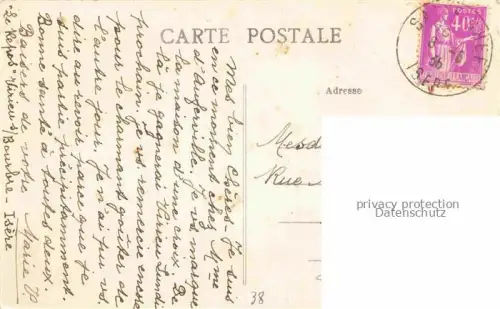 CARTE POSTALE
Adresse
POSTES
40c
Mes bien Chères - Je suis
en ce moment chez Mme
d'Aferville. Je vs marque
la maison d'une croix. De
là je gagnerai Virieu Lundi
prochain. Je vs remercie encore
pour le charmant goûter de
l'autre jour. Je n'ai pu vs
dire au revoir parce que je
suis partie précipitamment.
Bonne santé à toutes deux.
Baisers de votre Marie
Virieu s/ Bourbre - Isère
Mesd
Rue
38
privacy protection
Datenschutz